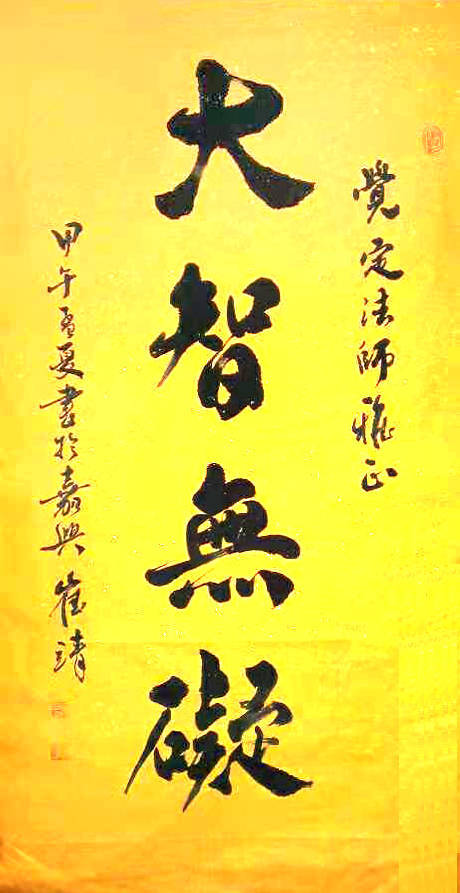 覺定法師雅正
大智無礙
甲午孟夏書於嘉興 崔靖